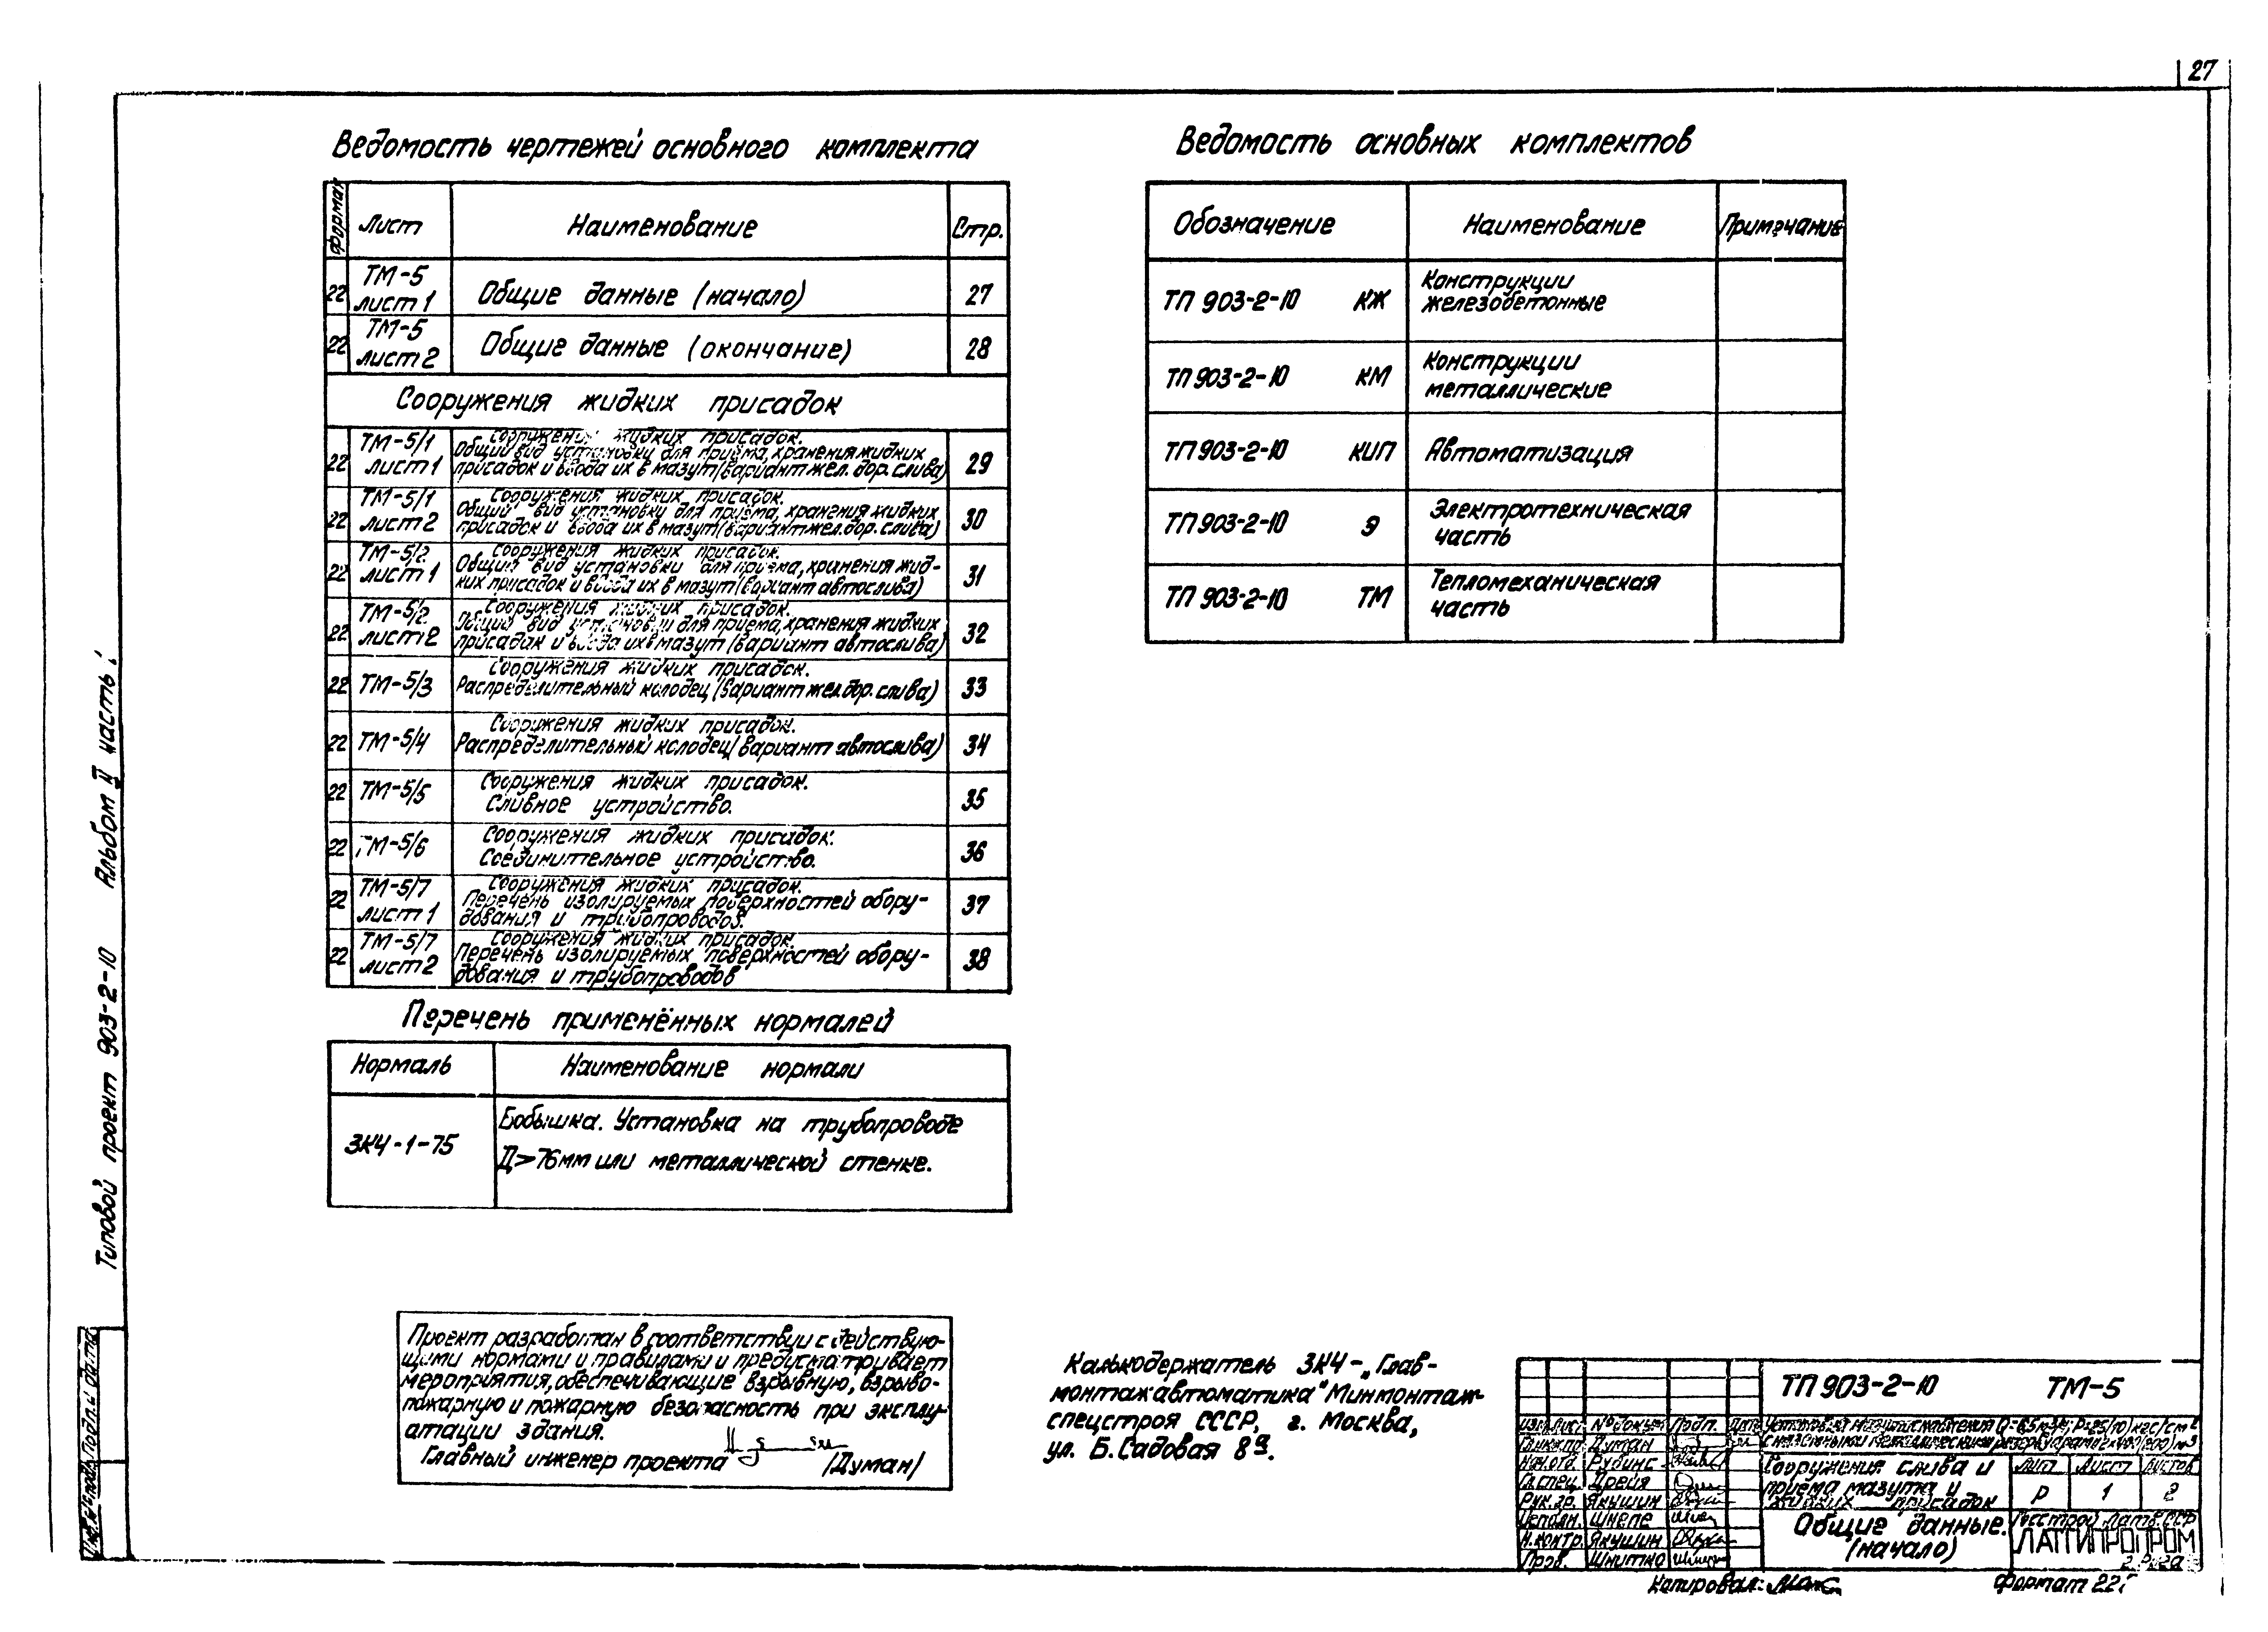 27
Ведомость чертежей основного комплекта
Формат Лист Наименование Стр.
22 ТМ-5 лист 1 Общие данные (начало) 27
22 ТМ-5 лист 2 Общие данные (окончание) 28
Сооружения жидких присадок
22 ТМ-5/1 лист 1 Сооружения жидких присадок.
Общий вид установки для приёма, хранения жидких
присадок и ввода их в мазут (вариант жел. дор. слива) 29
22 ТМ-5/1 лист 2 Сооружения жидких присадок.
Общий вид установки для приема, хранения жидких
присадок и ввода их в мазут (вариант жел. дор. слива) 30
22 ТМ-5/2 лист 1 Сооружения жидких присадок.
Общий вид установки для приема, хранения жид-
ких присадок и ввода их в мазут (вариант автослива) 31
22 ТМ-5/2 лист 2 Сооружения жидких присадок.
Общий вид установки для приема, хранения жидких
присадок и ввода их в мазут (вариант автослива) 32
22 ТМ-5/3 Сооружения жидких присадок.
Распределительный колодец (вариант жел.дор. слива) 33
22 ТМ-5/4 Сооружения жидких присадок.
Распределительный колодец (вариант автослива) 34
22 ТМ-5/5 Сооружения жидких присадок.
Сливное устройство. 35
22 ТМ-5/6 Сооружения жидких присадок.
Соединительное устройство. 36
22 ТМ-5/7 лист 1 Сооружения жидких присадок.
Перечень изолируемых поверхностей обору-
дования и трубопроводов. 37
22 ТМ-5/7 лист 2 Сооружения жидких присадок.
Перечень изолируемых поверхностей обору-
дования и трубопроводов 38
Перечень применённых нормалей
Нормаль Наименование нормали
ЗК4-1-75 Бобышка. Установка на трубопроводе
Д>76мм или металлической стенке.
Ведомость основных комплектов
Обозначение Наименование Примечание
ТП 903-2-10 КЖ Конструкции
железобетонные
ТП 903-2-10 КМ Конструкции
металлические
ТП 903-2-10 КИП Автоматизация
ТП 903-2-10 Э Электротехническая
часть
ТП 903-2-10 ТМ Тепломеханическая
часть
Проект разработан в соответствии с действую-
щими нормами и правилами и предусматривает
мероприятия, обеспечивающие взрывную, взрыво-
пожарную и пожарную безопасность при эксплу-
атации здания.
Главный инженер проекта /Думан/
Калькодержатель ЗК4-„Глав-
монтажавтоматика" Минмонтаж-
спецстроя СССР, г. Москва,
ул. Б. Садовая 8а.
Типовой проект 903-2-10 Альбом II часть 1
Инв.№ подл. Подп. и дата
ТП 903-2-10 ТМ-5
Изм. Лист № докум. Подп. Дата
Гл.инж.пр. Думан
Нач.отд. Рубинс
Гл.спец. Цреия
Рук.гр. Якушин
Исполн. Шнепе
Н.контр. Якушин
Пров. Шнитко
Установка мазутоснабжения Q=6,5м³/ч; Р=25(10)кгс/см²
с наземными металлическими резервуарами 2×400(200)м³
Сооружения слива и
приема мазута и
жидких присадок
Лит. Лист Листов
Р 1 2
Общие данные.
(начало)
Госстрой Латв. ССР
ЛАТГИПРОПРОМ
г. Рига
Копировал:
Формат 22г